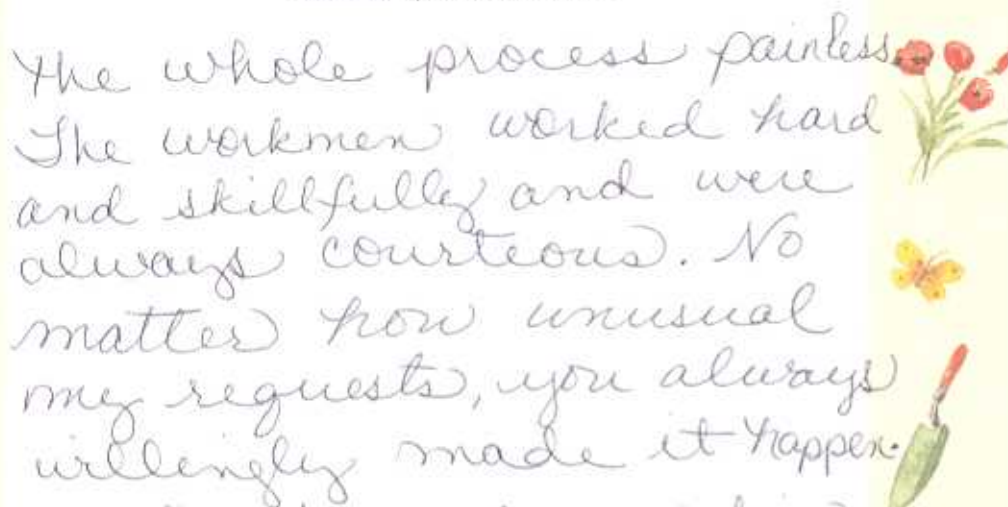 The whole process painless.
The workmen worked hard
and skillfully and were
always courteous. No
matter how unusual
my requests, you always
willingly made it happen.